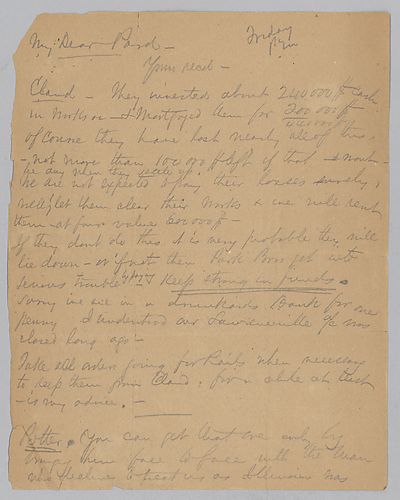 My Dear Pard — Friday
Yours recd —
Claud — They invested about 240 000 $ cash
in Works & Mortgaged them for 200 000 $
of course they have lost nearly all of this
— not more than 100 000 $ left of that
we are not expected to pay their losses surely,
let them clear their Works & we will rent
them at fair value 600 000 $ —
If they dont do this it is very probable they will
lie down — or if not then Park Bros get into
serious trouble Keep strong in funds.
Sorry we are in a drunkards Bank for one
penny I understood our Lawrenceville was
closed long ago —
Take all orders going for Rails when necessary
to keep them from Claud, for a while at least
— is my advice. —
Potter. You can get that one only by
them face to face with the man
to treat us as Illinois has